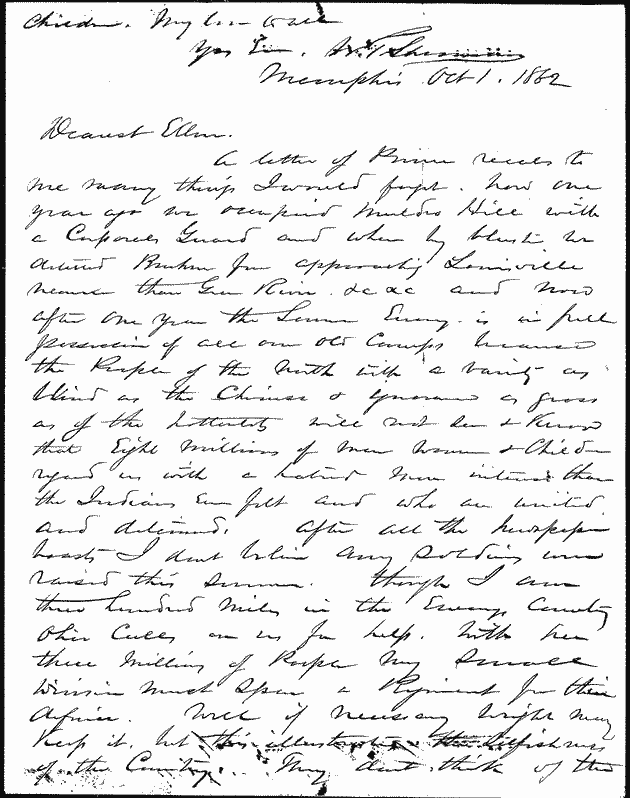 Children. My love to all
Yrs Ever. W. T. Sherman
Memphis Oct 1. 1862
Dearest Ellen.
A letter of Prime recals to
me many things I would forget. Now one
year ago we occupied Muldros Hill with
a Corporals Guard and when by bluster we
deterred Buckner from approaching Louisville
nearer than Green River. &c &c and now
after one year the Same Enemy. is in full
possession of all our old Camps because
the People of the North with a vanity as
blind as the Chinese & ignorance as gross
as of the Hottentots will not see & Know
that Eight Millions of Men Women & Children
regard us with a hatred more intense than
the Indians Ever felt and who are united
and determined. After all the newspaper
boasts I dont believe any Soldiers were
raised this summer. Though I am
three hundred miles in the Enemys Country
Ohio Calls on us for help. With her
three Millions of People my Small
Division must Spare a Regiment for their
defence. Well if necessary Wright may
Keep it, but this illustrates the selfishness
of the Country. They dont think of the